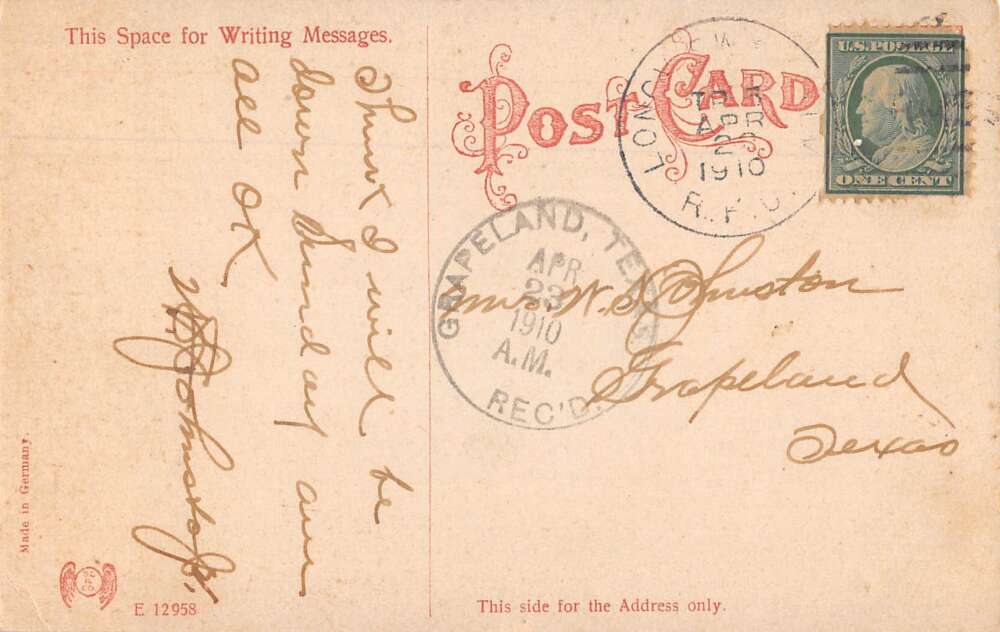 This Space for Writing Messages.
I will be
down Sunday am
all OK
W S Johnston
Made in Germany.
E. 12958
POST CARD
TR 3
APR
1910
R.P.O.
U.S. POSTAGE
ONE CENT
GRAPELAND, TEXAS
APR
23
1910
A.M.
REC'D.
Mrs W. S. Johnston
Grapeland
Texas
This side for the Address only.